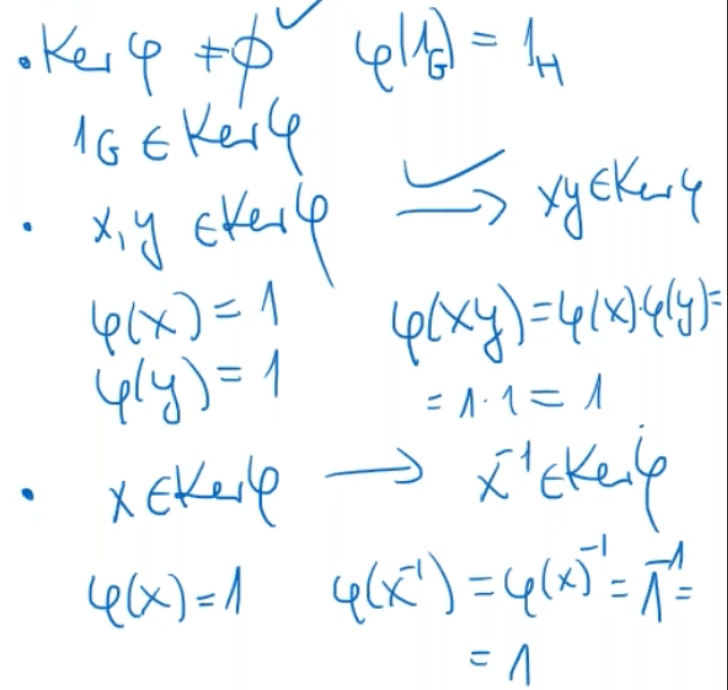 • Ker φ ≠ ∅ ✓ φ(1_G) = 1_H
1_G ∈ Ker φ
• x, y ∈ Ker φ ⟹ ✓ xy ∈ Ker φ
φ(x) = 1 φ(xy) = φ(x)·φ(y) =
φ(y) = 1 = 1·1 = 1
• x ∈ Ker φ ⟶ x⁻¹ ∈ Ker φ
φ(x) = 1 φ(x⁻¹) = φ(x)⁻¹ = 1⁻¹ =
= 1